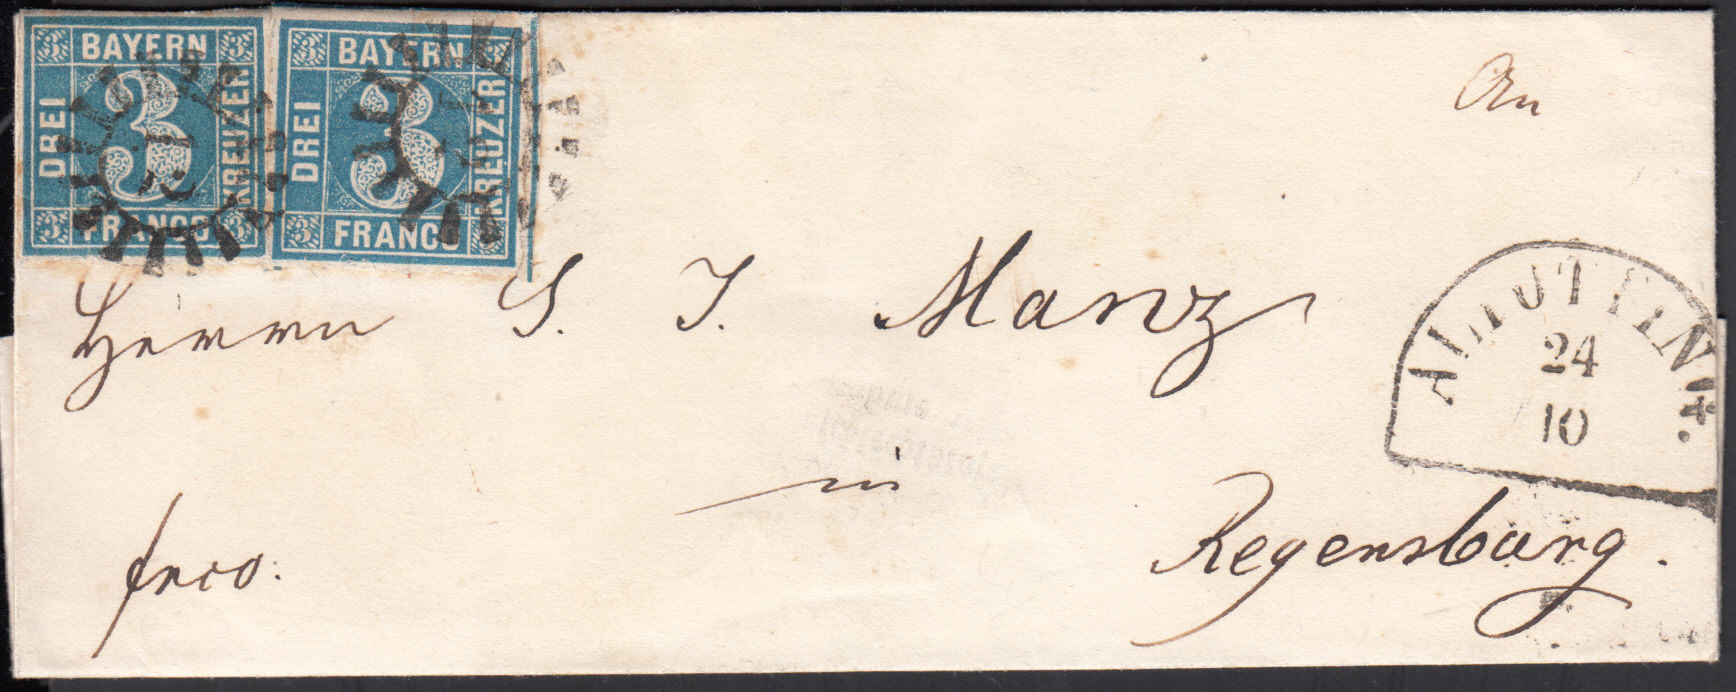 3 BAYERN 3
DREI 3 KREUZER
3 FRANCO 3
3 BAYERN
DREI 3 KREUZER
3 FRANCO
An
Herrn S. J. Manz
in
Regensburg.
frco.
24
10